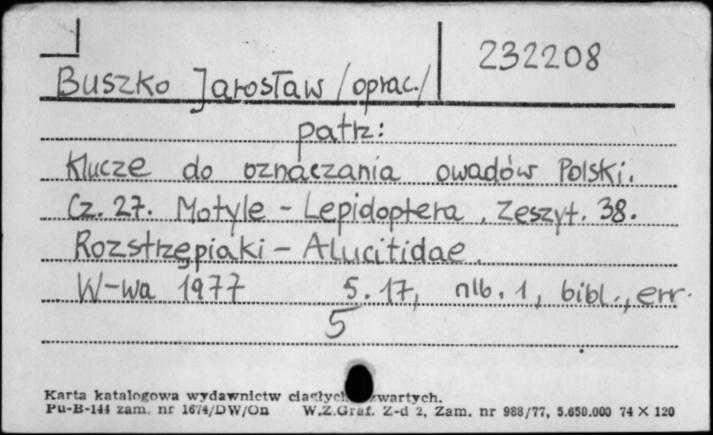 232208
Buszko Jarosław /oprac./
patrz:
Klucze do oznaczania owadów Polski.
Cz. 27. Motyle - Lepidoptera. Zeszyt. 38.
Rozstrzępiaki - Alucitidae.
W-wa 1977 S. 17, nlb. 1, bibl., err.
5
Karta katalogowa wydawnictw zwartych.
Pu-B-144 zam. nr 1674/DW/On W.Z.Graf. Z-d 2, Zam. nr 988/77, 5.650.000 74 X 120